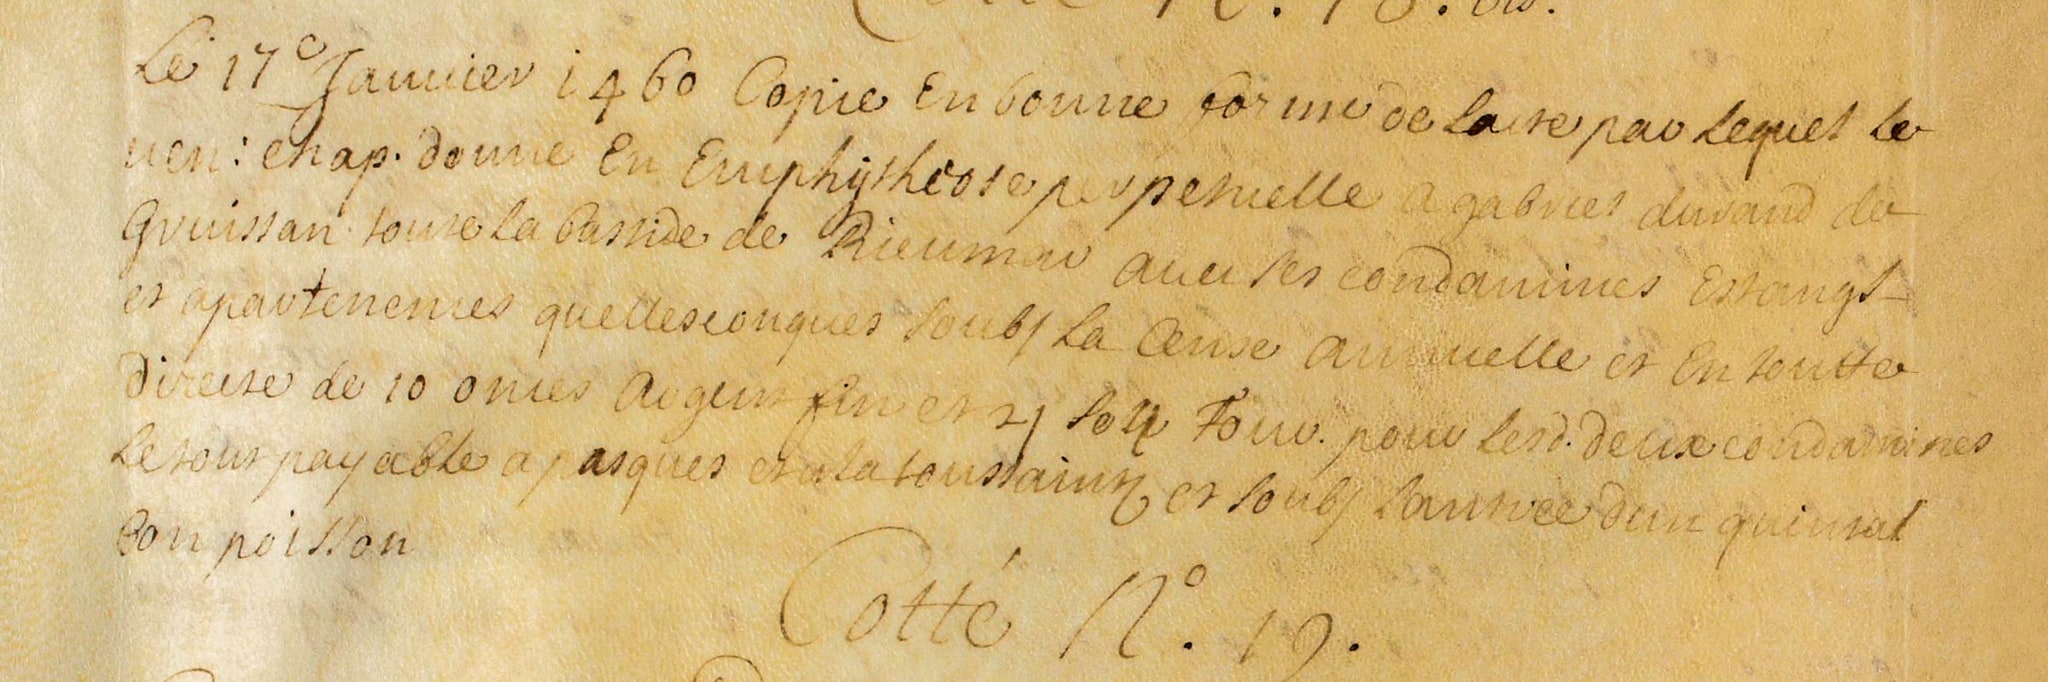 Cotté N°. 18. bis.
Le 17e Janvier 1460 Copie en bonne forme de lacte par lequel le
ven: chap. donne en Emphytheose perpetuelle a gabriel durand de
Gruissan toute la bastide de Rieumar avec ses condamines Estangs
et apartenences quellesconques soubs la Cense annuelle et en toutte
directe de 10 onces argent fin et 2 s tour. pour lesd. deux condamines
le tout payable a pasques et a la toussaint et soubs lantree dun quintal
bon poisson
Cotté N°. 19.